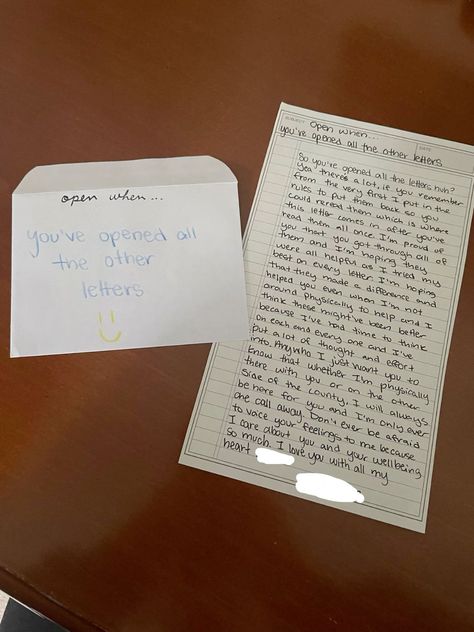 open when...
you've opened all
the other
letters
SUBJECT
DATE
Open when...
you've opened all the other letters
So you've opened all the letters huh?
Yea' theres a lot, if you remember
from the very first I put in the
rules to put them back so you
could reread them which is where
this letter comes in after you've
read them all once. I'm proud of
you that you got through all of
them and I'm hoping they
were all helpful as I tried my
best on every letter. I'm hoping
that they made a difference and
helped you even when I'm not
around physically to help and I
think these might've been better
because I've had time to think
on each and every one and I've
put a lot of thought and effort
into. Anywho I just want you to
know that whether I'm physically
there with you or on the other
side of the county, I will always
be here for you and I'm only ever
one call away. Don't ever be afraid
to voice your feelings to me because
I care about you and your wellbeing
so much. I love you with all my
heart